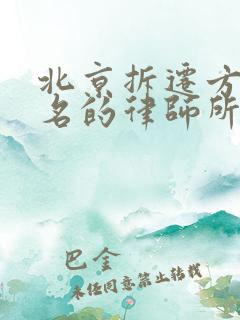 北京拆迁方
名的律师所
巴金
未经同意禁止转载